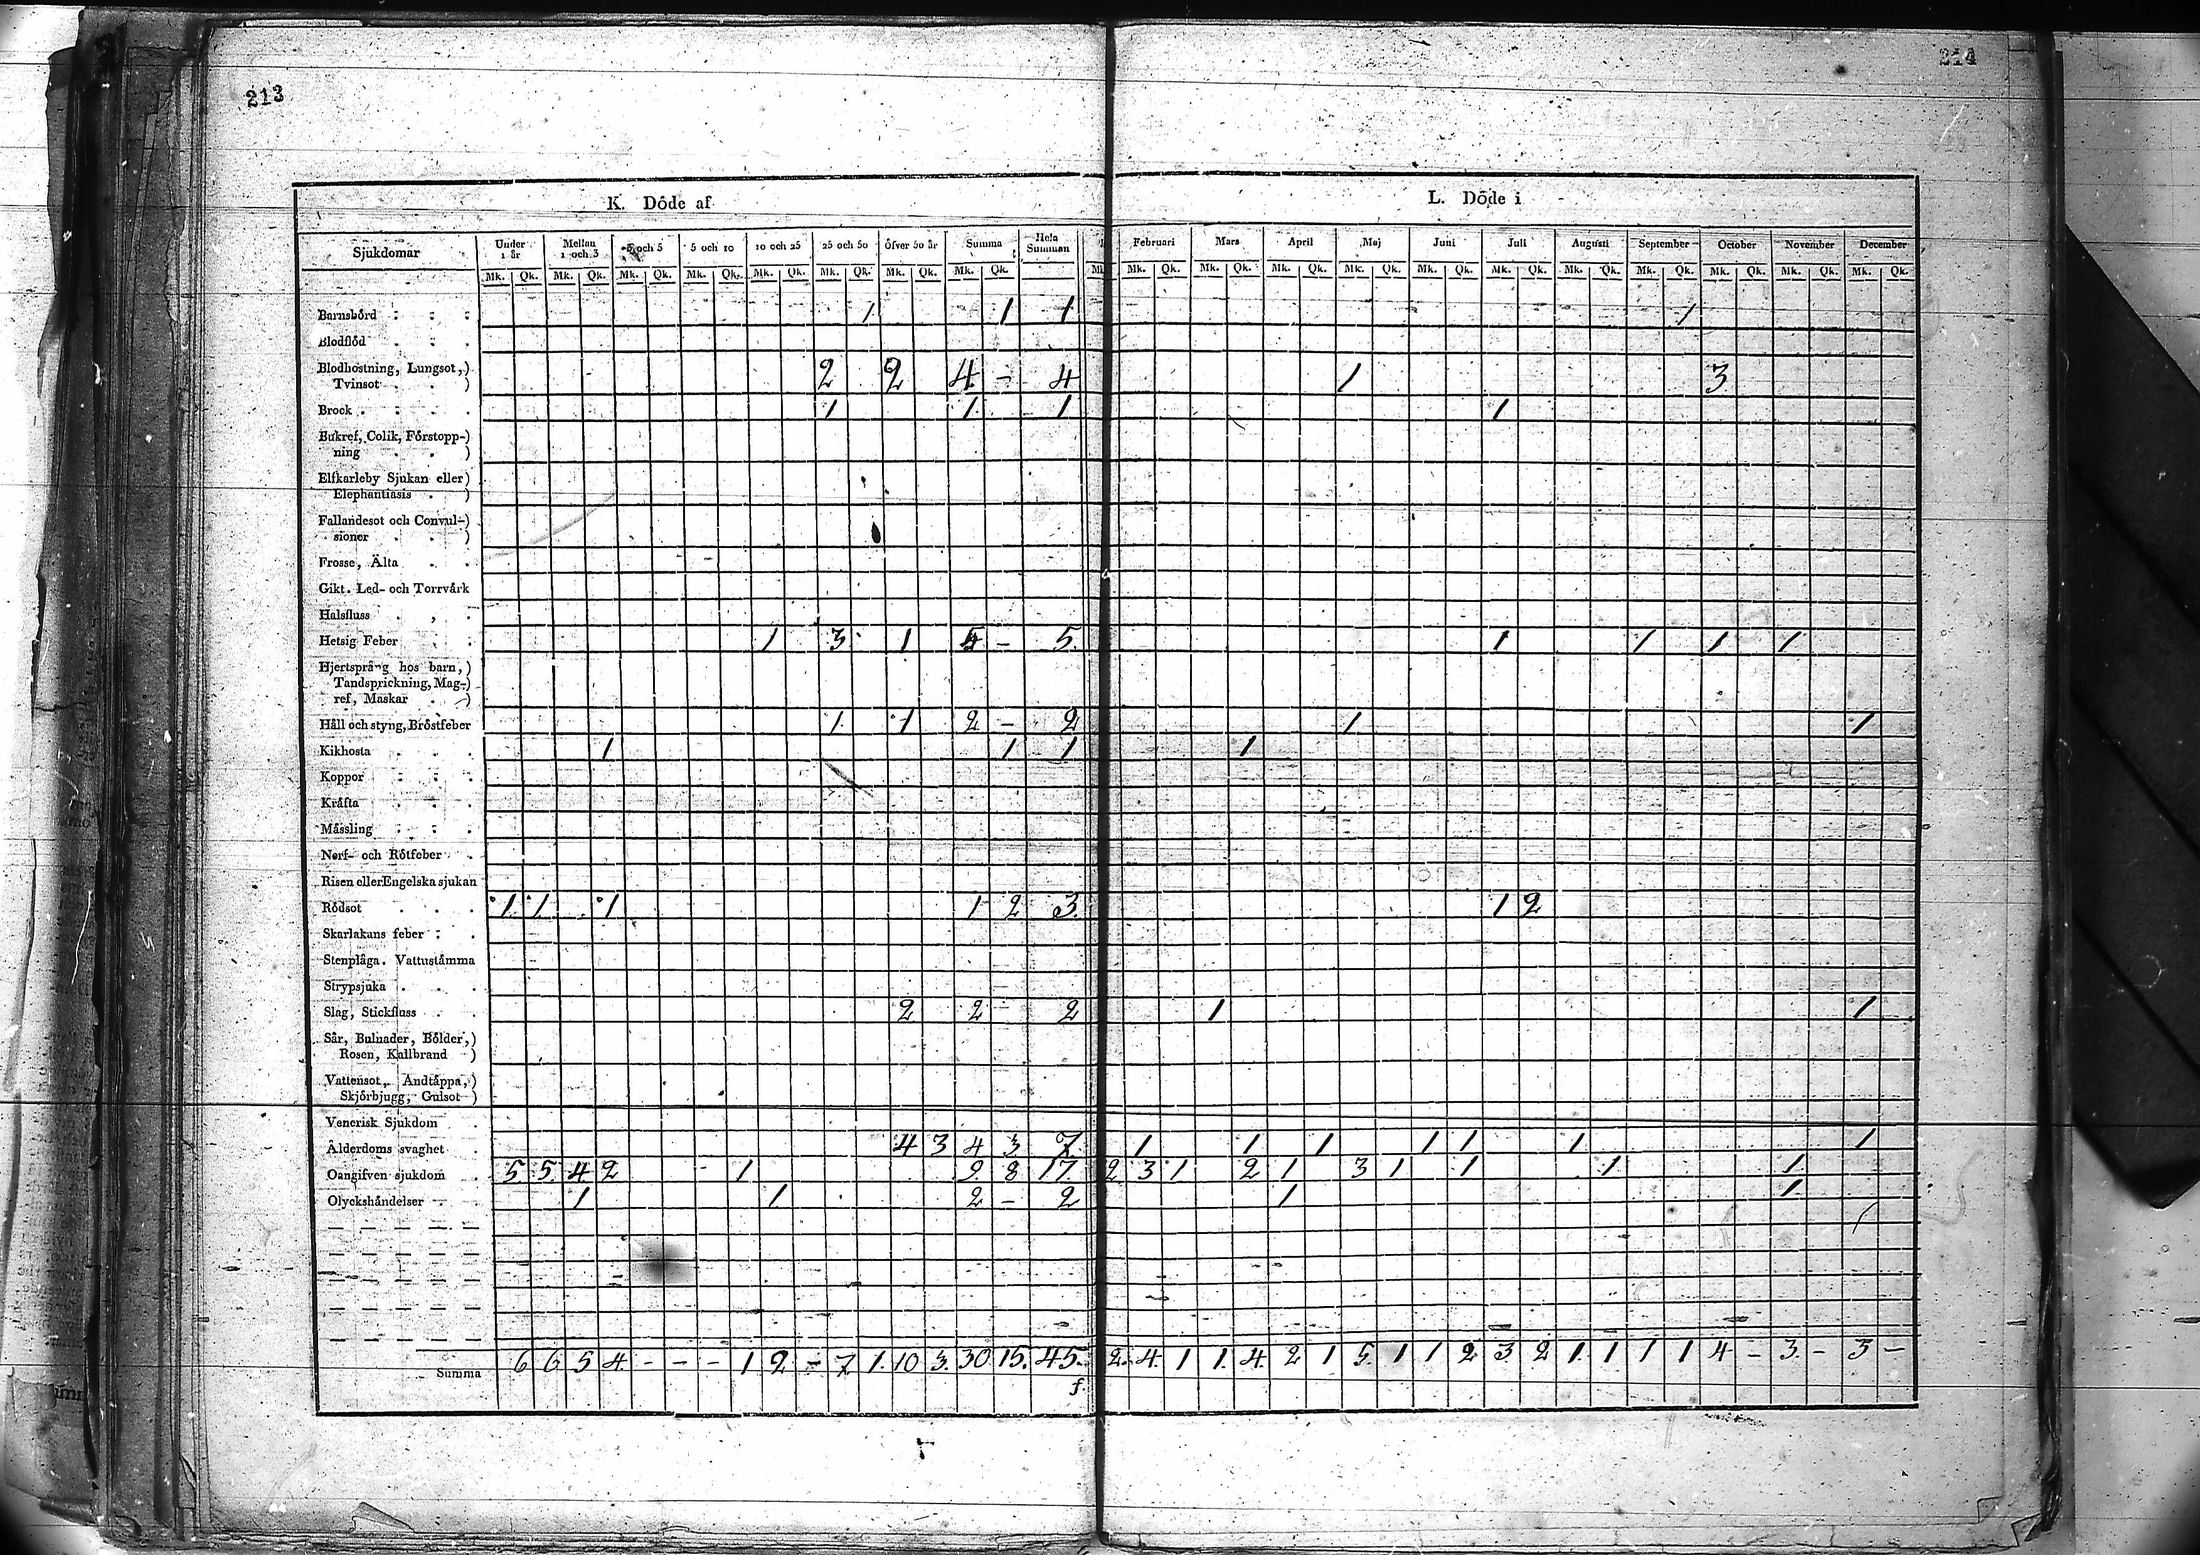 213
214
K. Döde af
L. Döde i
Sjukdomar | Under 1 år | Mellan 1 och 3 | 3 och 5 | 5 och 10 | 10 och 25 | 25 och 50 | öfver 50 år | Summa | Hela Summan | Februari | Mars | April | Maj | Juni | Juli | Augusti | September | October | November | December
Mk. Qk. Mk. Qk. Mk. Qk. Mk. Qk. Mk. Qk. Mk. Qk. Mk. Qk. Mk. Qk. Mk. Mk. Qk. Mk. Qk. Mk. Qk. Mk. Qk. Mk. Qk. Mk. Qk. Mk. Qk. Mk. Qk. Mk. Qk. Mk. Qk. Mk. Qk.
Barnsbörd 1 1 1 1
Blodflöd
Blodhostning, Lungsot,)
Tvinsot ) 2 2 4 - 4 1 3
Brock 1 1 1 1
Bukref, Colik, Förstopp-)
ning )
Elfkarleby Sjukan eller)
Elephantiasis )
Fallandesot och Convul-)
sioner )
Frosse, Älta
Gikt. Led- och Torrvärk
Halsfluss
Hetsig Feber 1 3 1 5 - 5 1 1 1 1
Hjertsprång hos barn,)
Tandsprickning, Mag-)
ref, Maskar )
Håll och styng, Bröstfeber 1 1 2 - 2 1 1
Kikhosta 1 1 1 1
Koppor
Kräfta
Mässling
Nerf- och Rötfeber
Risen eller Engelska sjukan
Rödsot 1 1 1 1 2 3 1 2
Skarlakans feber
Stenplåga. Vattustämma
Strypsjuka
Slag, Stickfluss 2 2 - 2 1 1
Sår, Bulnader, Bölder,)
Rosen, Kallbrand )
Vattensot, Andtäppa,)
Skjörbjugg, Gulsot )
Venerisk Sjukdom
Ålderdoms svaghet 4 3 4 3 7 1 1 1 1 1 1 1
Oangifven sjukdom 5 5 4 2 1 9 8 17 2 3 1 2 1 3 1 1 1 1
Olyckshändelser 1 1 2 - 2 1 1
Summa 6 6 5 4 - - - 1 2 - 7 1 10 3 30 15 45 2 4 1 1 4 2 1 5 1 1 2 3 2 1 1 1 1 4 - 3 - 3 -